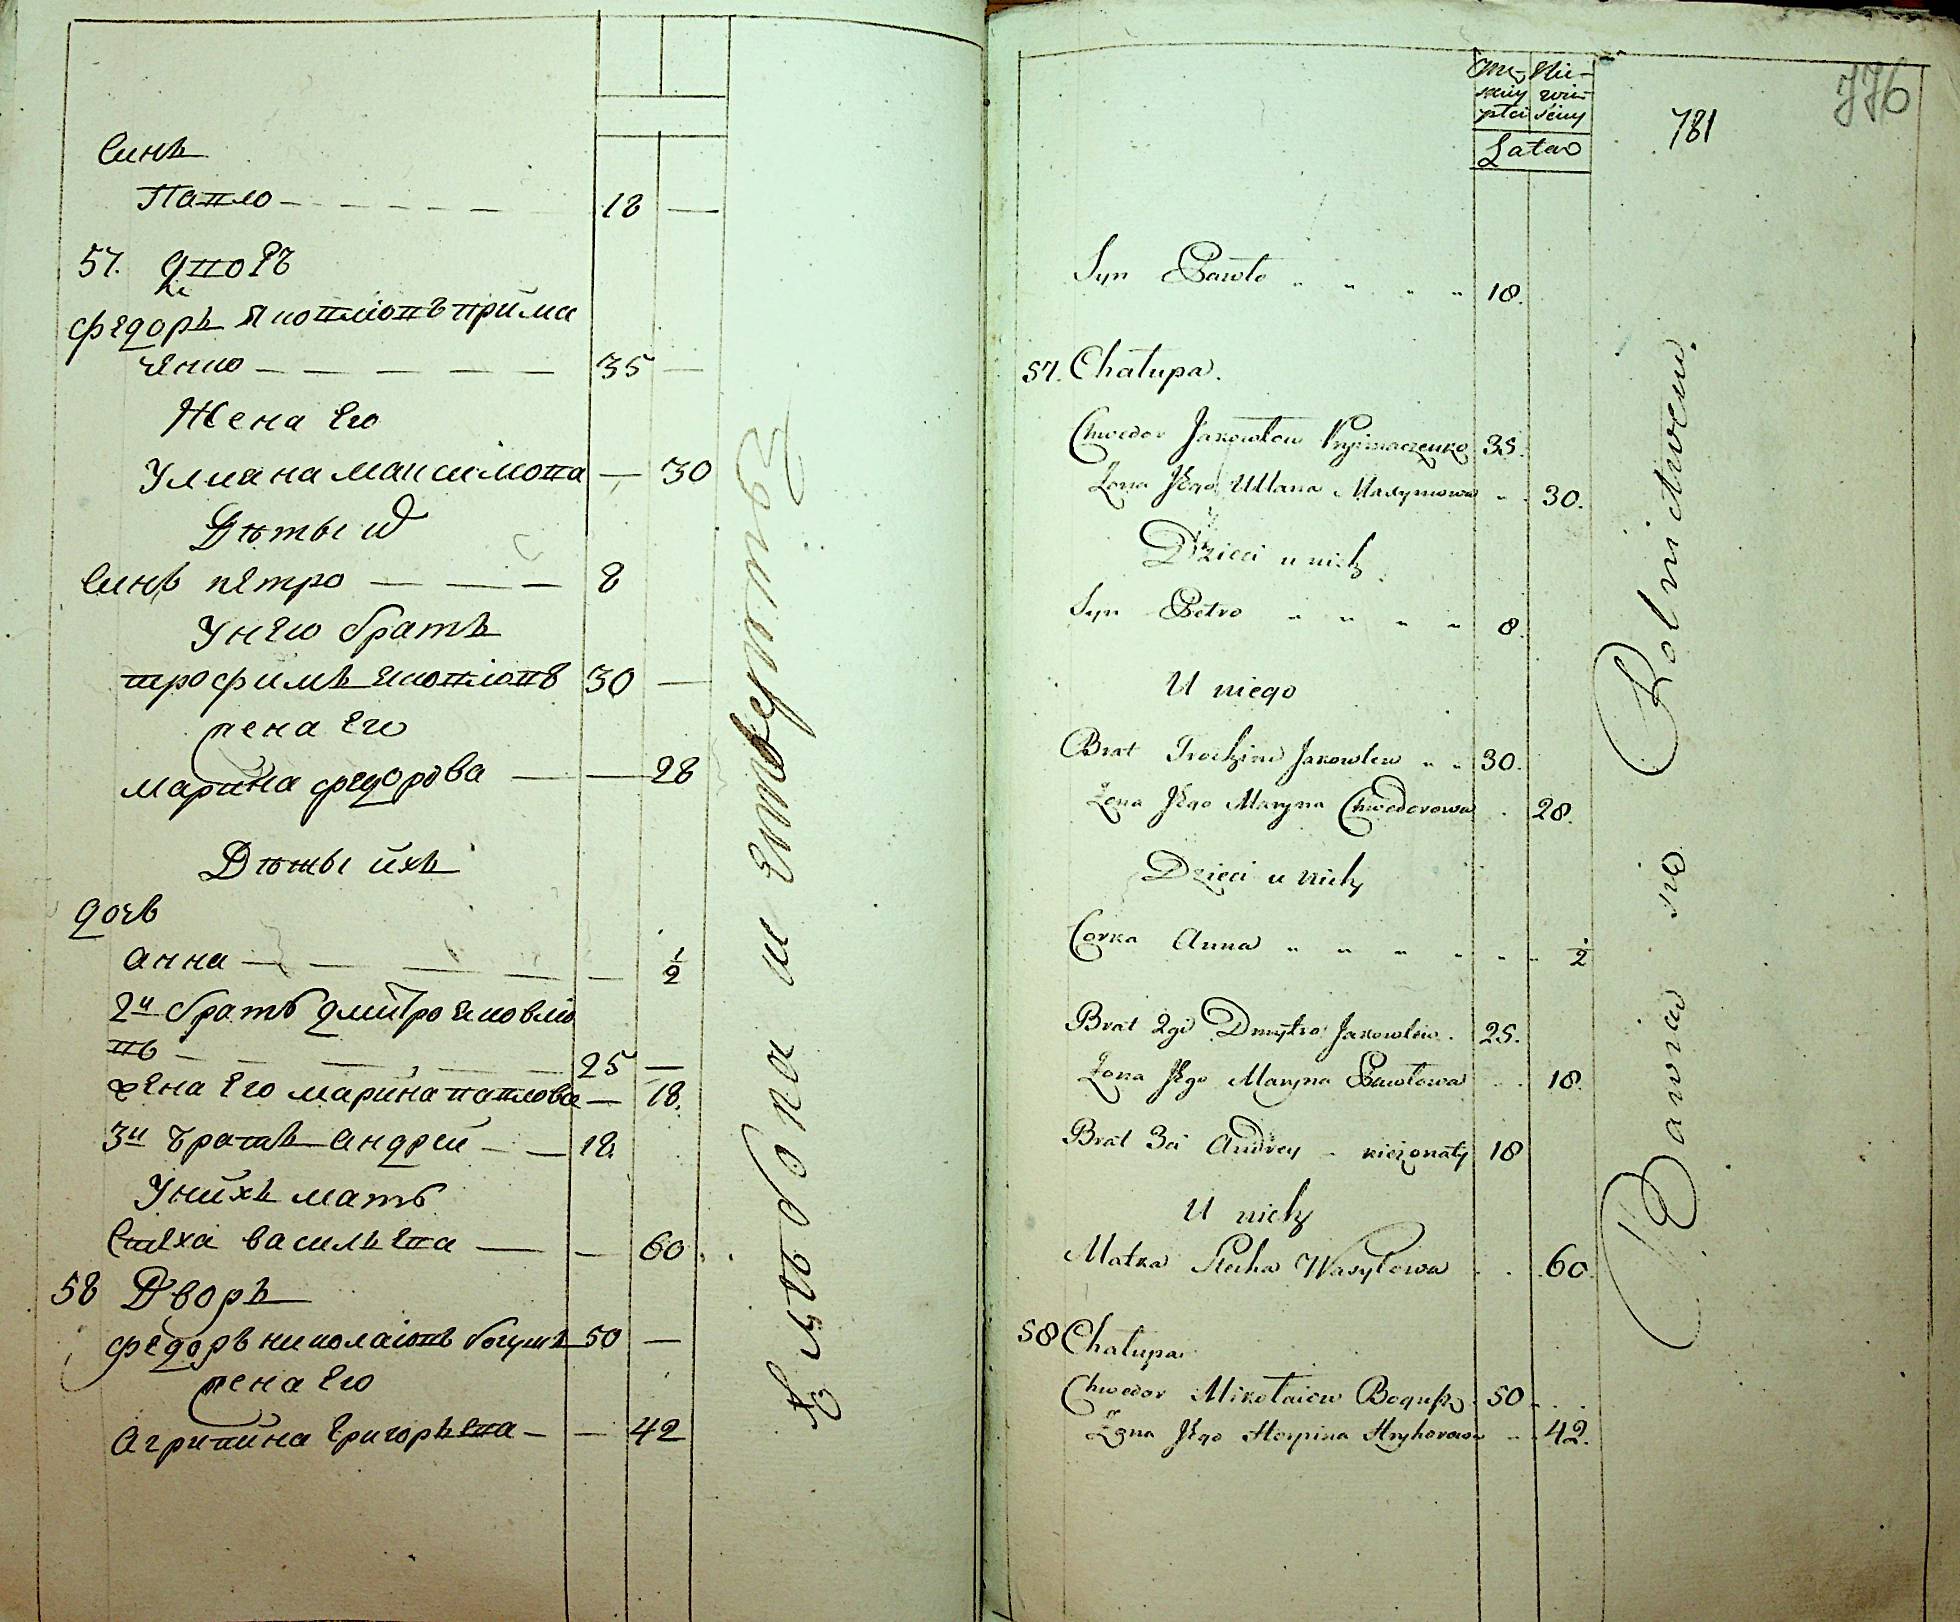 Синъ
Павло — 18 —
57. Дворъ
Федоръ Яковлювъ Прима
ченко — 35 —
Жена Его
Улиана Максимова — 30
Дѣты и
Синъ Петро — 8
У него братъ
Трофимъ Яковлювъ 30 —
жена Его
Марина Федорова — 28
Дѣты ихъ
Дочь
Анна — 1/2
2й братъ Дмитро Яковлю
въ — 25 —
жена Его Марина Павлова — 18.
3й братъ Андрей — 18.
У нихъ мать
Стеха Васильева — 60
58 Дворъ
Федоръ Николаювъ Богушъ 50 —
жена Его
Агрипина Григорьева — 42
Хлѣбопашествуетъ
Mę- Nie-
skiey wie-
płci sciey
Lata
781
776
Syn Pawło 18.
57. Chałupa.
Chwedor Jakowlew Pryimaczenko 35.
Żona Jego Ullana Maxymowa 30.
Dzieci u nich
Syn Petro 8.
U niego
Brat Trochim Jakowlew 30.
Żona Jego Maryna Chwedorowa 28.
Dzieci u nich
Corka Anna 1/2
Brat 2gi Dmytro Jakowlew. 25.
Żona Jego Maryna Pawłowa 18.
Brat 3ci Andrey - nieżonaty 18
U nich
Matka Stecha Wasylowa 60.
58 Chałupa
Chwedor Mikołaiew Bogusz 50
Żona Jego Horpina Hryhorowa 42.
Bawia się Rolnictwem.